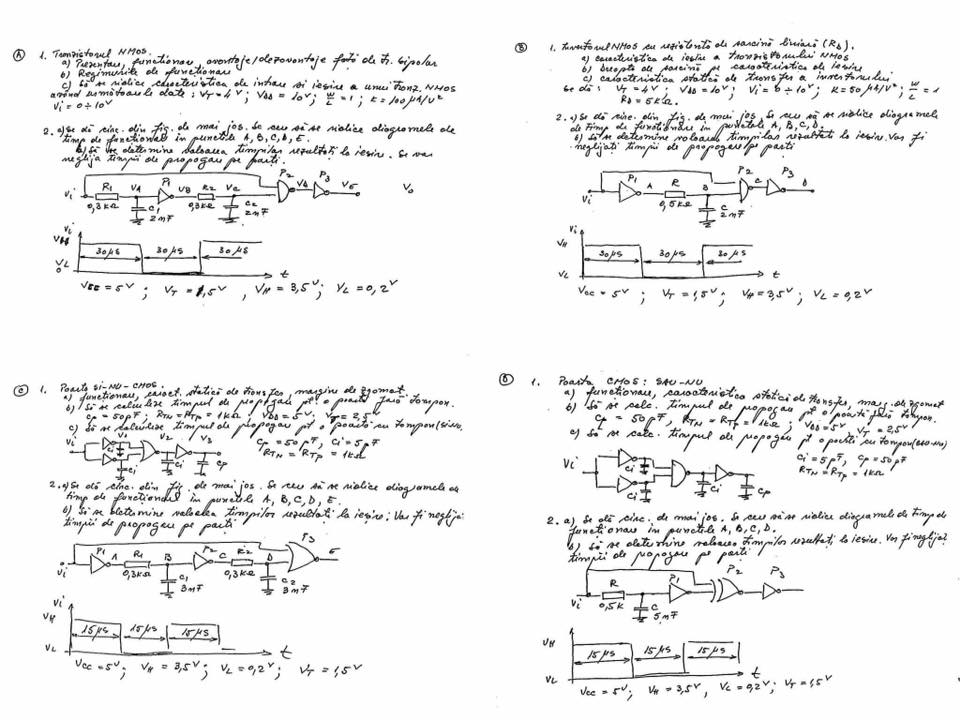 A 1. Tranzistorul NMOS.
a) Prezentare, functionare, avantaje/dezavantaje fata de tz. bipolar
b) Regimurile de functionare
c) Sa se ridice caracteristica de intrare si iesire a unui tranz. NMOS
avand urmatoarele date: VT = 4V; VDD = 10V; W/L = 1; K = 100 µA/V²
Vi = 0 ÷ 10V
2. a) Se da circ. din fig. de mai jos. Se cere sa se ridice diagramele de
timp de functionare in punctele A, B, C, D, E
b) Sa se determine valoarea timpilor rezultati la iesire. Se va
neglija timpii de propagare pe parti.
Vi R1 VA P1 VB R2 VC P2 VD P3 VE Vo
0,3kΩ C1 2nF 0,3kΩ C2 2nF
VH Vi 30µs 30µs 30µs
VL
0
t
VEE = 5V; VT = 1,5V, VH = 3,5V; VL = 0,2V
B 1. Invertorul NMOS cu rezistenta de sarcina liniara (RD).
a) caracteristica de iesire a tranzistorului NMOS
b) dreapta de sarcina pe caracteristica de iesire
c) caracteristica statica de transfer a invertorului
se da: VT = 4V; VDD = 10V; Vi = 0 ÷ 10V; K = 50 µA/V²; W/L = 1
RD = 5KΩ.
2. a) Se da circ. din fig. de mai jos. Se cere sa se ridice diagramele
de timp de functionare in punctele A, B, C, D.
b) Sa se determine valoarea timpilor rezultati la iesire. Vor fi
neglijati timpii de propagare pe parti
Vi P1 A R B P2 C P3 D
0,5kΩ C 2nF
Vi
VH 30µs 30µs 30µs
VL t
Vcc = 5V; VT = 1,5V; VH = 3,5V, VL = 0,2V
C 1. Poarta SI-NU-CMOS.
a) functionare, caract. statica de transfer, margine de zgomot.
b) Sa se calculeze timpul de propagare pt o poarta fara tampon.
Cp = 50pF; RTN = RTp = 1kΩ; VDD = 5V; VT = 2,5V
c) Sa se calculeze timpul de propagare pt o poarta cu tampon
Vi V2 V3 Ci Ci Ci Cp
Cp = 50pF, Ci = 5pF
RTN = RTp = 1kΩ
2. a) Se da circ. din fig. de mai jos. Se cere sa se ridice diagramele de
timp de functionare in punctele A, B, C, D, E.
b) Sa se determine valoarea timpilor rezultati la iesire; Vor fi neglijati
timpii de propagare pe parti
Vi P1 A R1 B P2 C R2 D P3 E
0,3kΩ C1 3nF 0,3kΩ C2 3nF
Vi
VH 15µs 15µs 15µs
VL t
Vcc = 5V; VH = 3,5V; VL = 0,2V; VT = 1,5V
D 1. Poarta CMOS: SAU-NU
a) functionare, caracteristica statica de transfer, marg. de zgomot
b) Sa se calc. timpul de propagare pt o poarta fara tampon.
Cp = 50pF, RTN = RTp = 1kΩ; VDD = 5V VT = 2,5V
c) Sa se calc. timpul de propagare pt o poarta cu tampon
Ci = 5pF, Cp = 50pF
RTN = RTp = 1kΩ
Vi Ci Ci Ci Cp
2. a) Se da circ. de mai jos. Se cere sa se ridice diagramele de timp de
functionare in punctele A, B, C, D.
b) Sa se determine valoarea timpilor rezultati la iesire. Vor fi neglijati
timpii de propagare pe parti
Vi R P1 P2 P3
0,5k C 5nF
VH 15µs 15µs 15µs
VL t
Vcc = 5V; VH = 3,5V, VL = 0,2V; VT = 1,5V